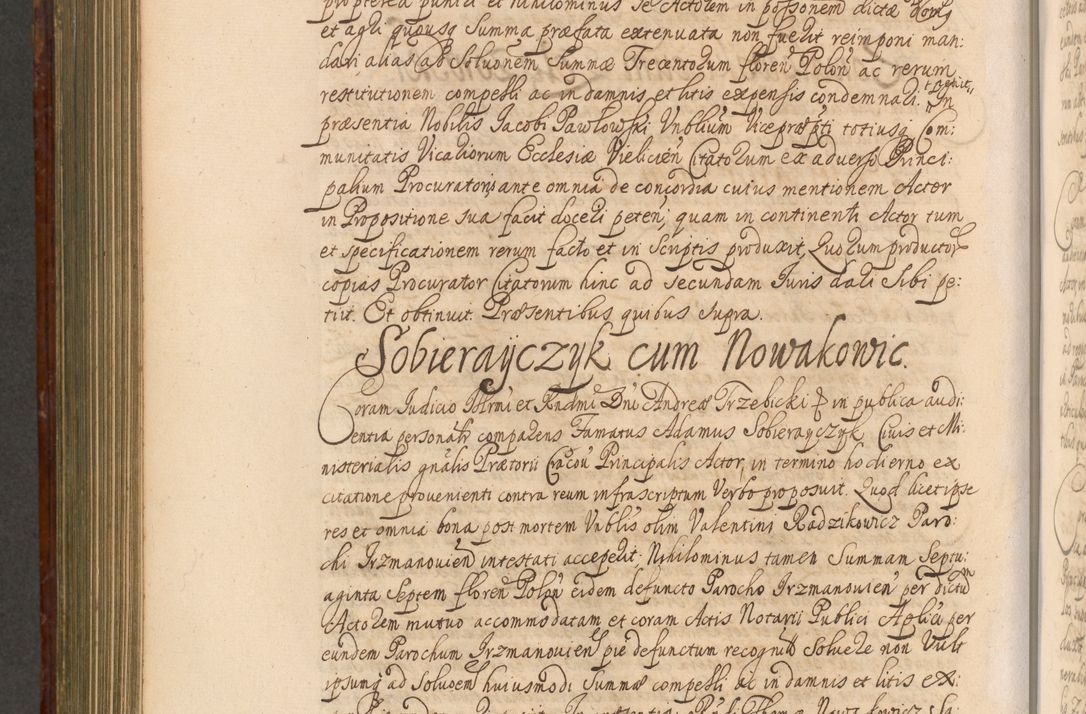 propterea puniri et nihilominus se Actorem in possonem dictæ domus
et agri quousq summa præfata extenuata non fuerit reimponi man:
dari alias ad Soluõnem Summæ Trecentorum floreñ Poloñ ac rerum
restitutionem compelli ac in damnis et litis expensis condemnari.
præsentia Nobilis Jacobi Pawlowski Vnblium Vicepræpti totiusq Com:
munitatis Vicariorum Ecclesiæ Vielicień Citatorum ex adverso Princi:
palium Procuratoris ante omnia de concordia cuius mentionem Actor
in Propositione sua facit doceri peteñ, quam in continenti Actor tum
et specificationem rerum facto et in Scriptis produxit, Quorum productor
copias Procurator Citatorum hinc ad secundam Iuris dari sibi pe:
tiit. Et obtinuit. Præsentibus quibus supra.
Sobierayczyk cum Nowakowic.
Coram Judicio Illrmi et Rndmi Dni Andreæ Trzebicki in publica audi:
entia personalr comparens Famatus Adamus Sobierayczyk Civis et Mi:
nisterialis gnalis Prætorii Cracoū Principalis Actor, in termino hodierno ex
citatione provenienti contra reum infrascriptum Verbo proposuit. Quod licet ipse
res et omnia bona post mortem Vnblis olim Valentini Radzikowicz Paro:
chi Irzmanovień intestati acceperit. Nihilominus tamen Summam Septu:
aginta Septem floreñ Poloñ eidem defuncto Parocho Irzmanovień per dictum
Actorem mutuo accommodatam et coram Actis Notarii Publici Aplica per
eundem Parochum Irzmanovień pie defunctum recognit Soluere non Vult
ipsumq ad Soluoem huiusmodi Summæ compelli ac in damnis et litis ex: